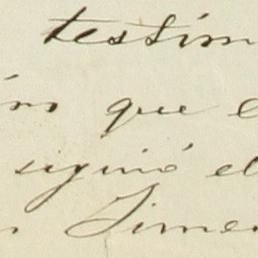 testim
ín que e
siguió el
n Jimen